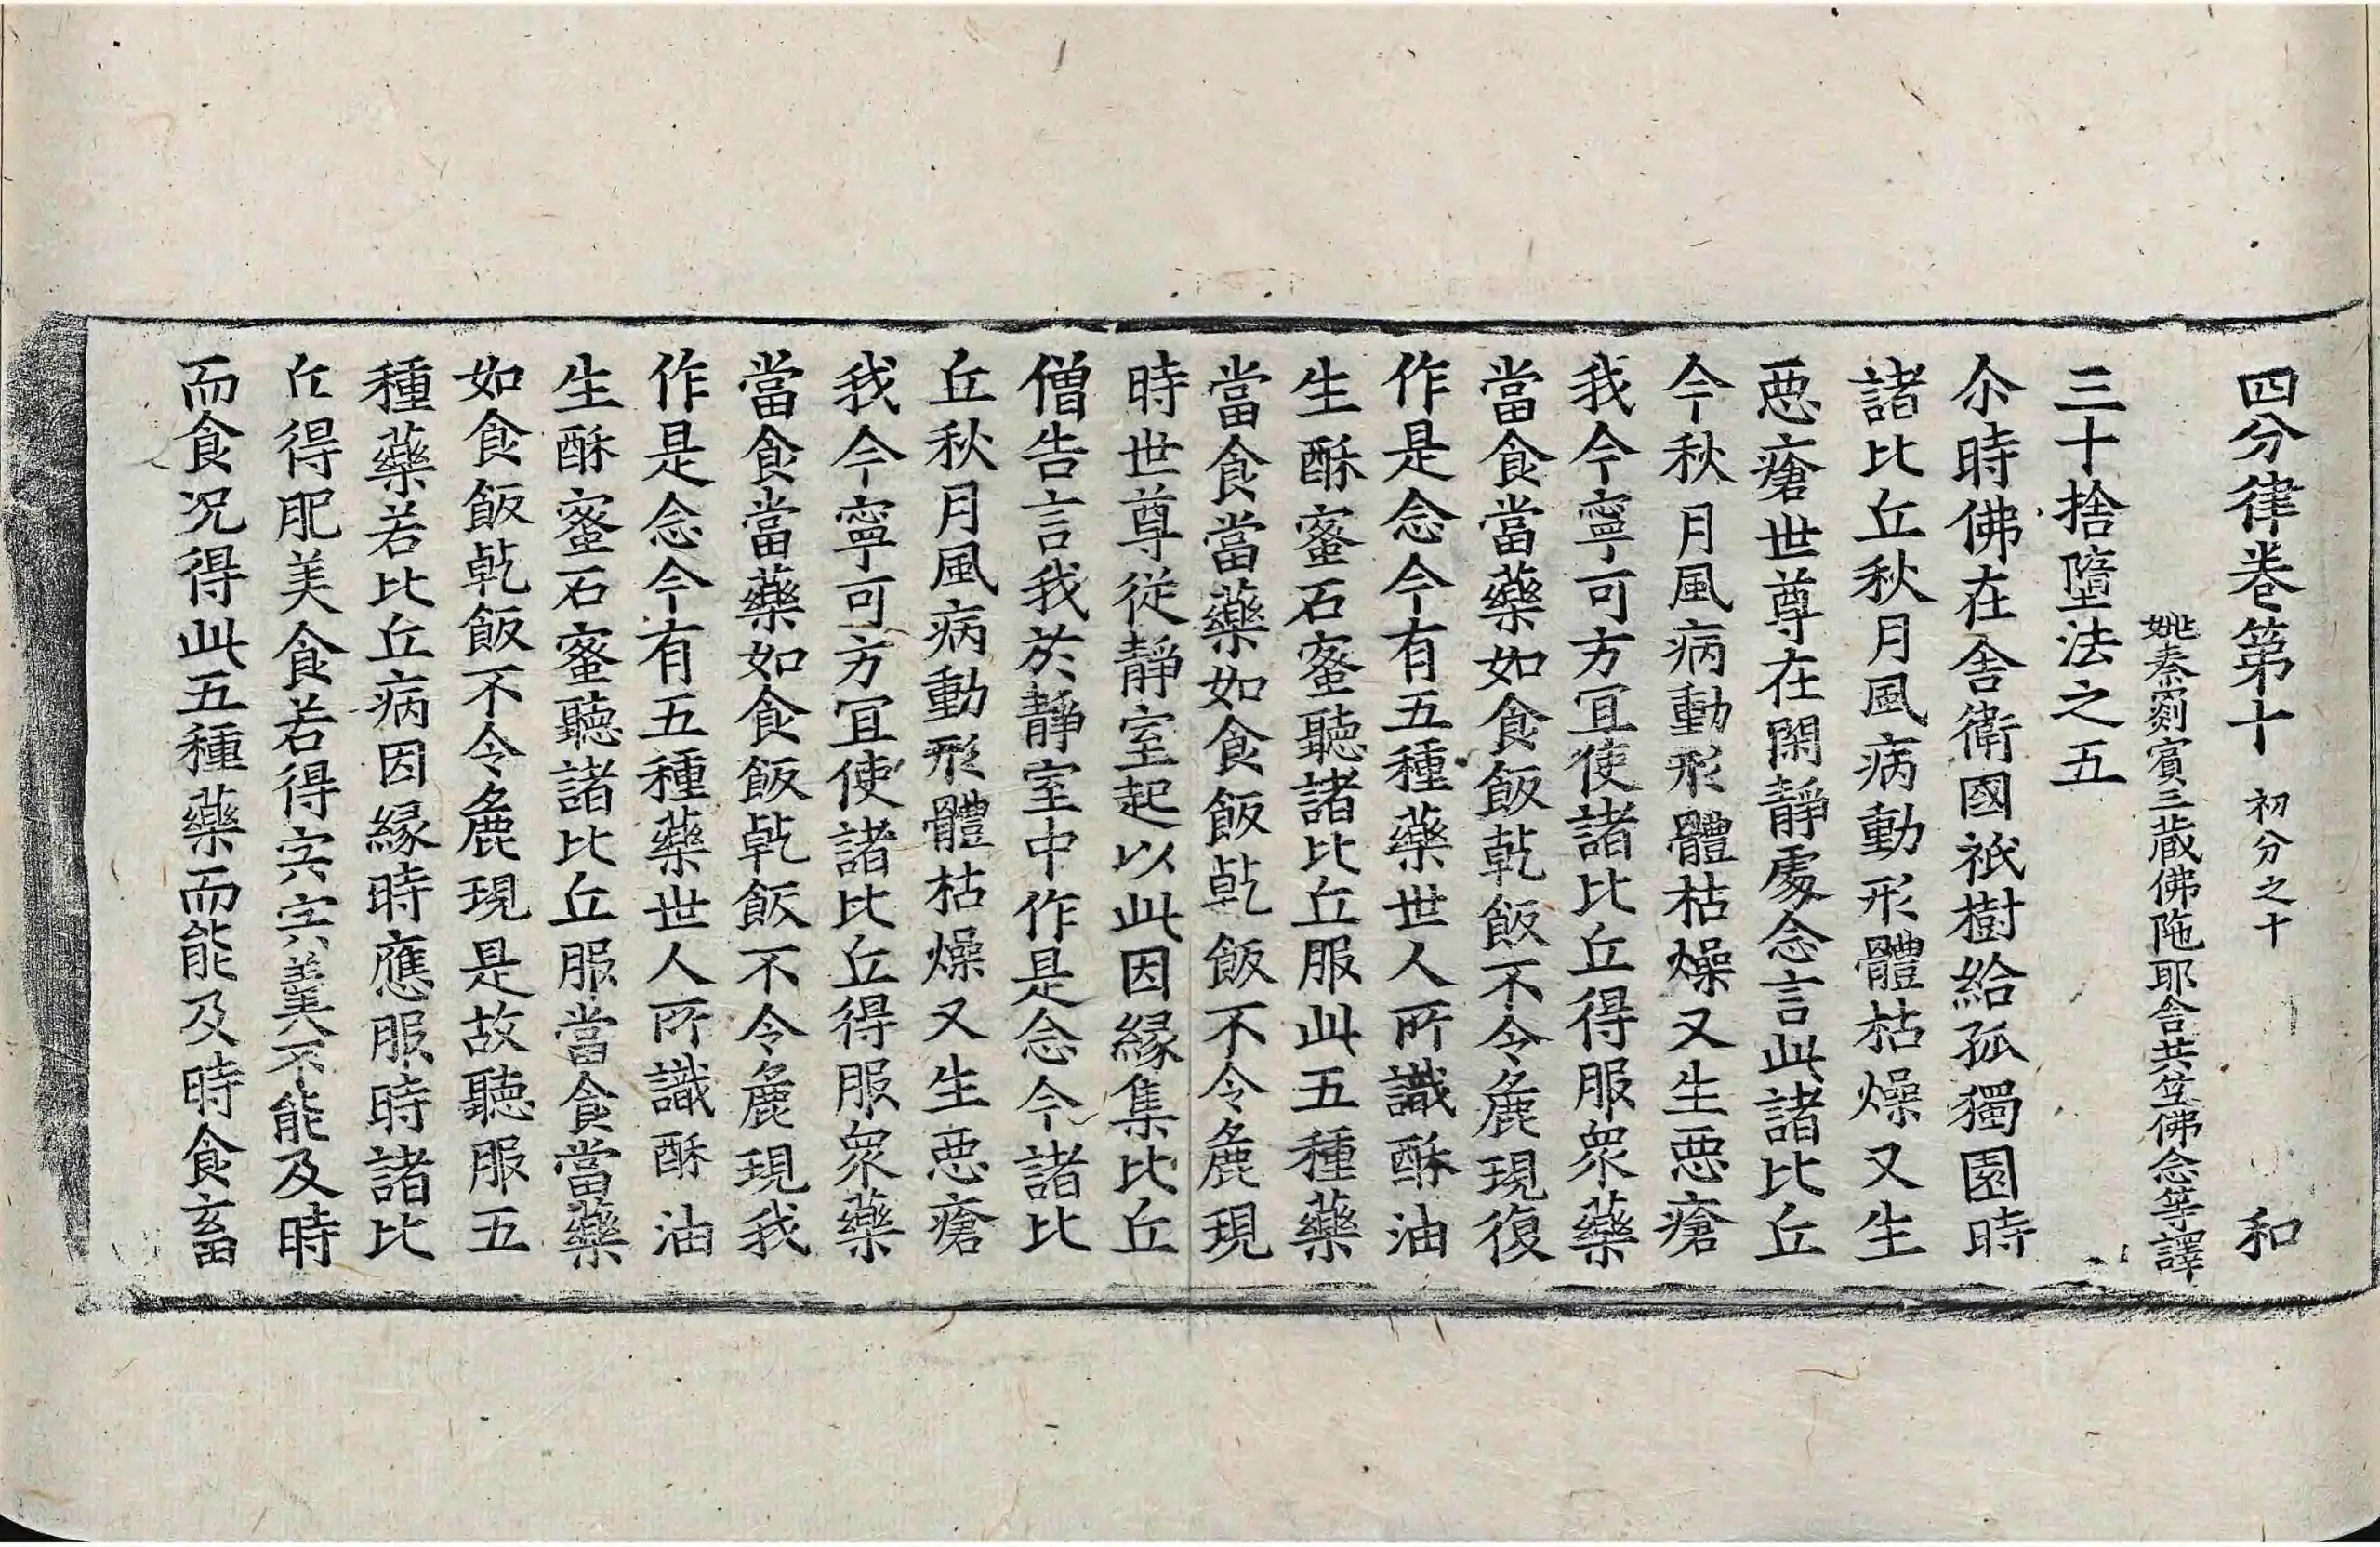 四分律卷第十 初分之十 和
姚秦罽賓三藏佛陁耶舍共笁佛念等譯
三十捨墮法之五
尒時佛在舍衛國祇樹給孤獨園時
諸比丘秋月風病動形體枯燥又生
惡瘡世尊在閑靜處念言此諸比丘
今秋月風病動形體枯燥又生惡瘡
我今寧可方冝使諸比丘得服衆藥
當食當藥如食飯乾飯不令麁現復
作是念今有五種藥世人所識酥油
生酥蜜石蜜聽諸比丘服此五種藥
當食當藥如食飯乾飯不令麁現
時世尊從靜室起以此因緣集比丘
僧告言我於靜室中作是念今諸比
丘秋月風病動形體枯燥又生惡瘡
我今寧可方冝使諸比丘得服衆藥
當食當藥如食飯乾飯不令麁現我
作是念今有五種藥世人所識酥油
生酥蜜石蜜聽諸比丘服當食當藥
如食飯乾飯不令麁現是故聽服五
種藥若比丘病因緣時應服時諸比
丘得肥美食若得宍宍羹不能及時
而食况得此五種藥而能及時食畜